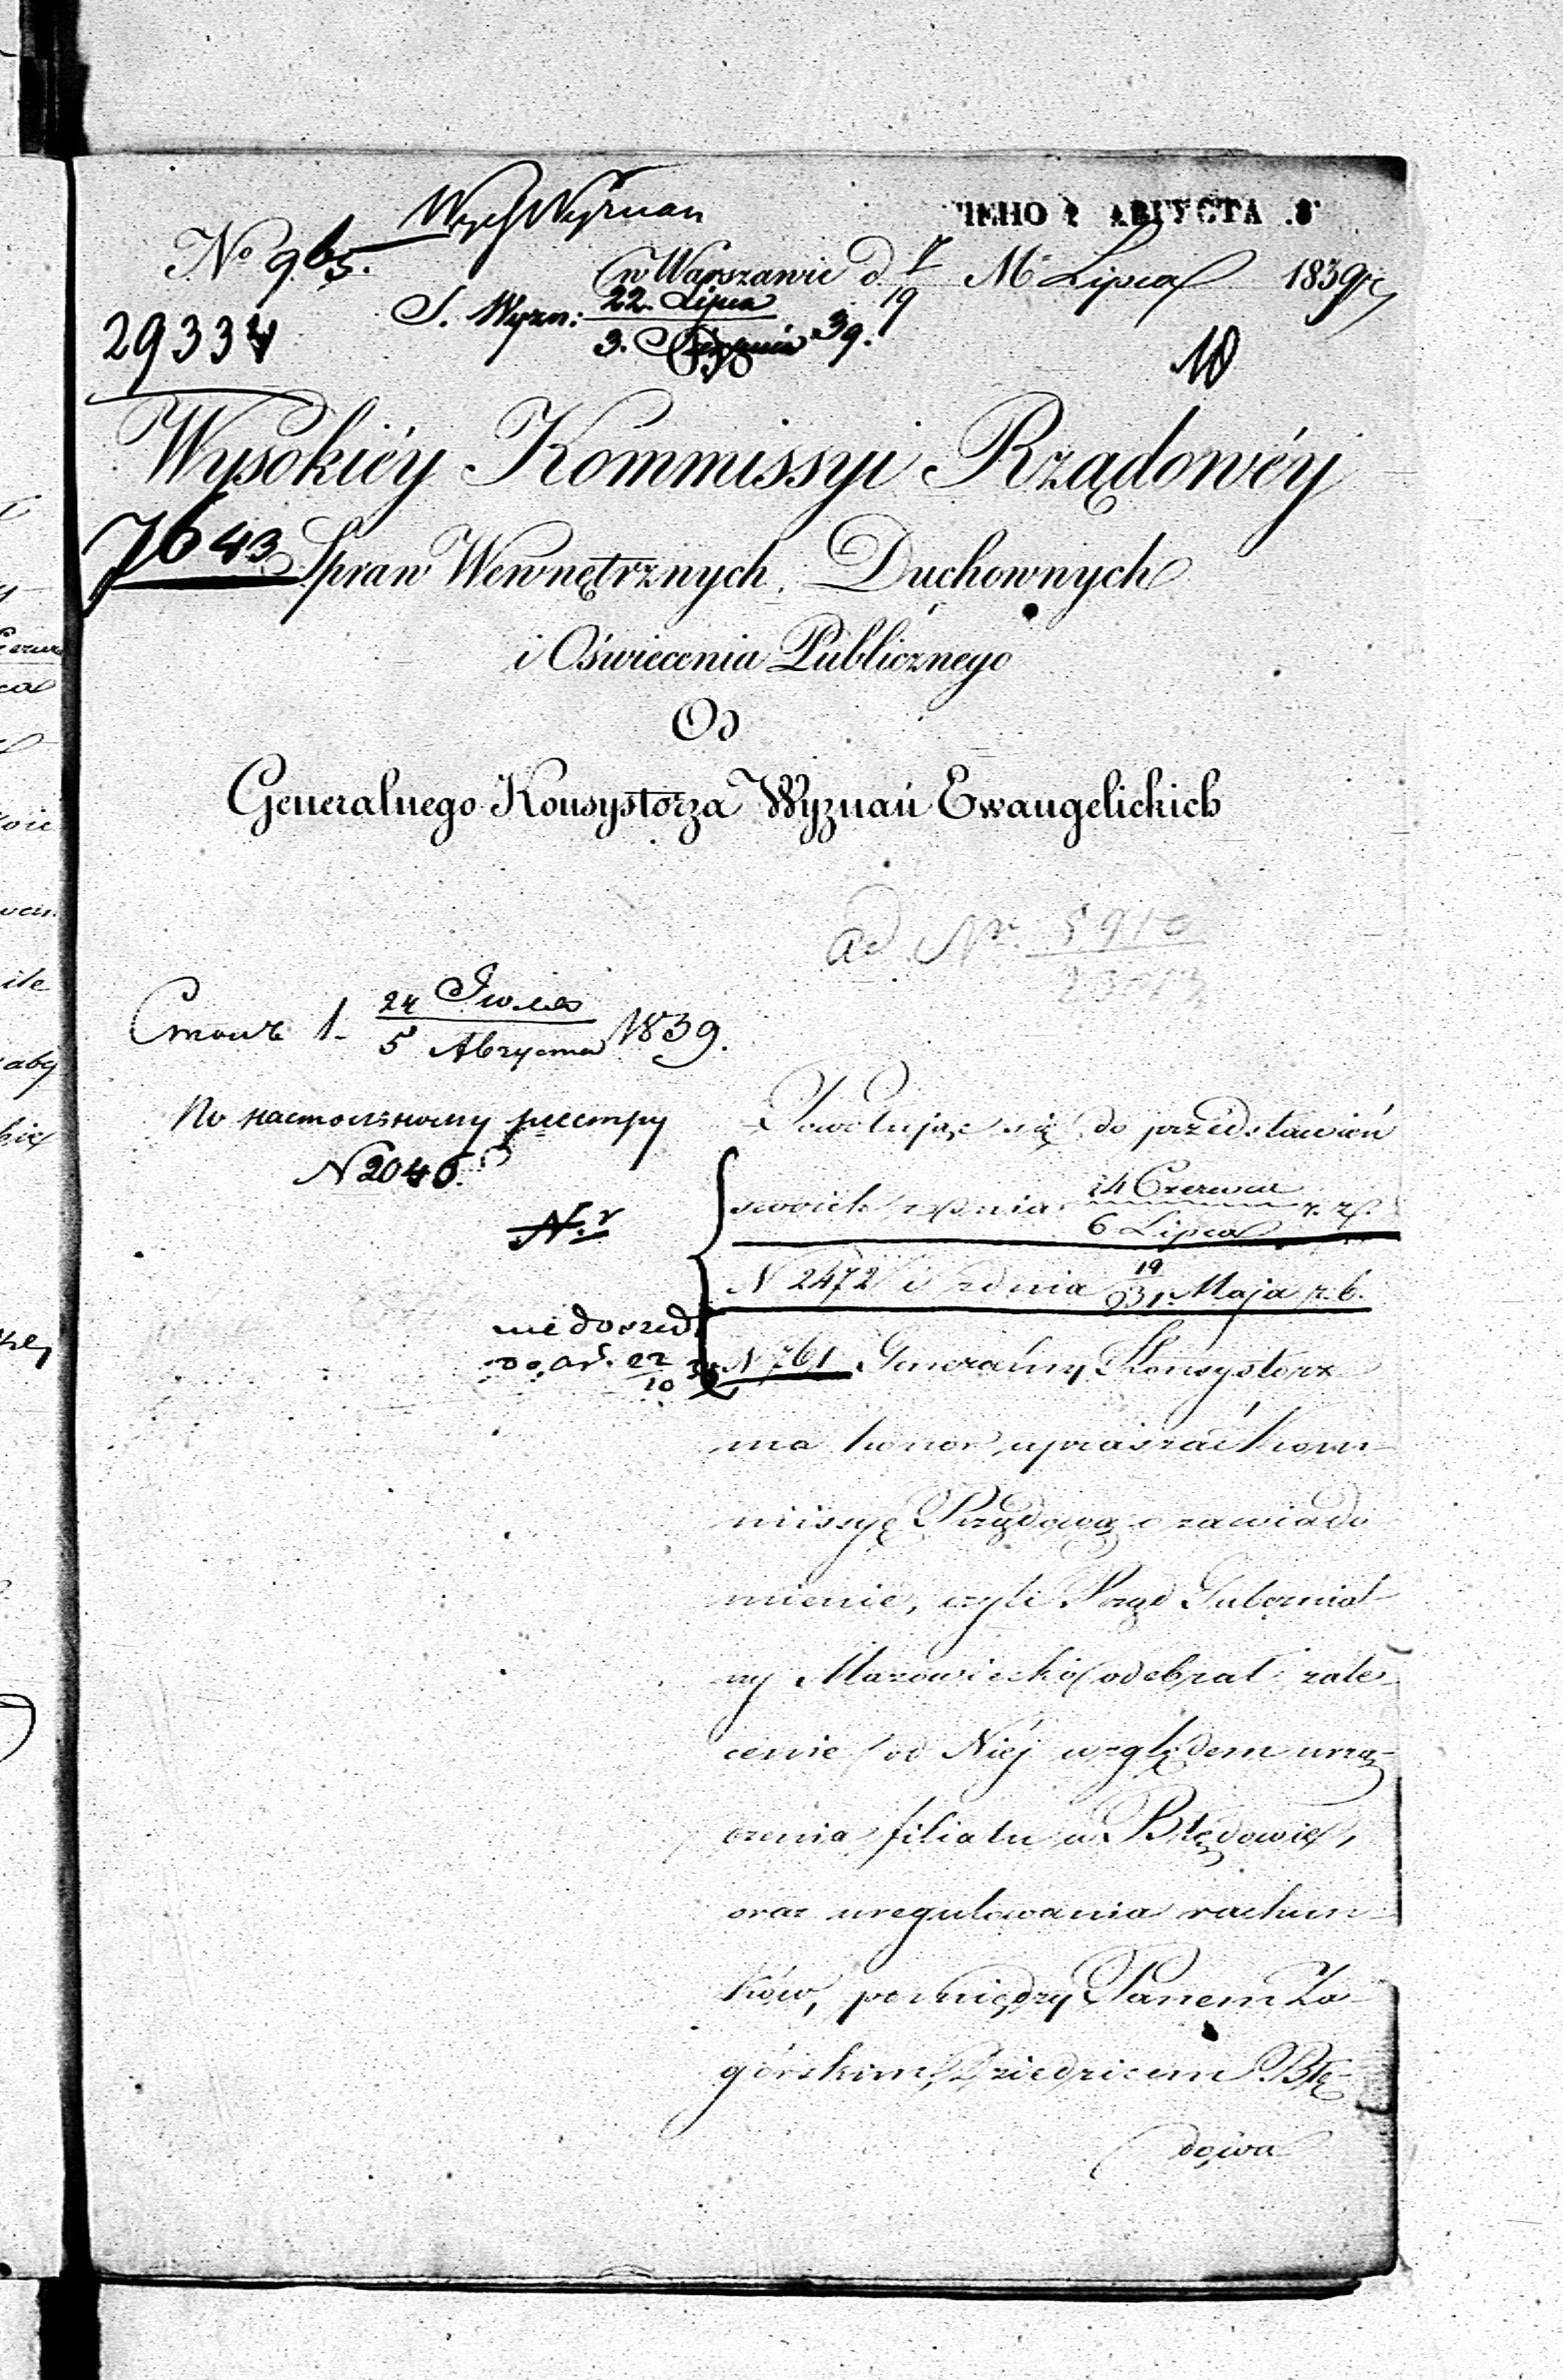 Wyd. Wyznań
ЧЕНО 2 АВГУСТА
№ 965.
w Warszawie d. 7/19 Mca Lipca 1839 r.
S. Wyzn: 22. Lipca / 3. Sierpnia 39.
29334
10
Do
Wysokiéy Kommissyi Rządowéy
7643
Spraw Wewnętrznych, Duchownych
i Oświecenia Publicznego
Od
Generalnego Konsystorza Wyznań Ewangelickich
ad Nr. 5910
Столъ 1. 24 Іюля / 5 Августа 1839.
По настольному реестру
N 2046.
Powołując się do przedstawień
swoich z dnia 24 Czerwca / 6 Lipca r. z.
N.r
N 2472 i z dnia 19/31 Maja r. b.
nie doszedł
N 761 Generalny Konsystorz
ma honor upraszać Kom-
missyę Rządową o zawiado-
mienie, czyli Rząd Gubernial-
ny Mazowiecki odebrał zale-
cenie od Niéj względem urzą-
dzenia filiału w Błędowie,
oraz uregulowania rachun-
ków, pomiędzy Panem Za-
górskim, Dziedzicem Błę-
dowa